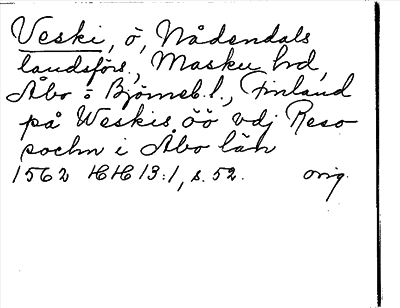 Veski, ö, Nådendals
landsförs., Masku hd,
Åbo o Björneb. l., Finland
på Weskis öö vdj Reso
sochn i Åbo län
1562 HH 13:1, s. 52. orig.